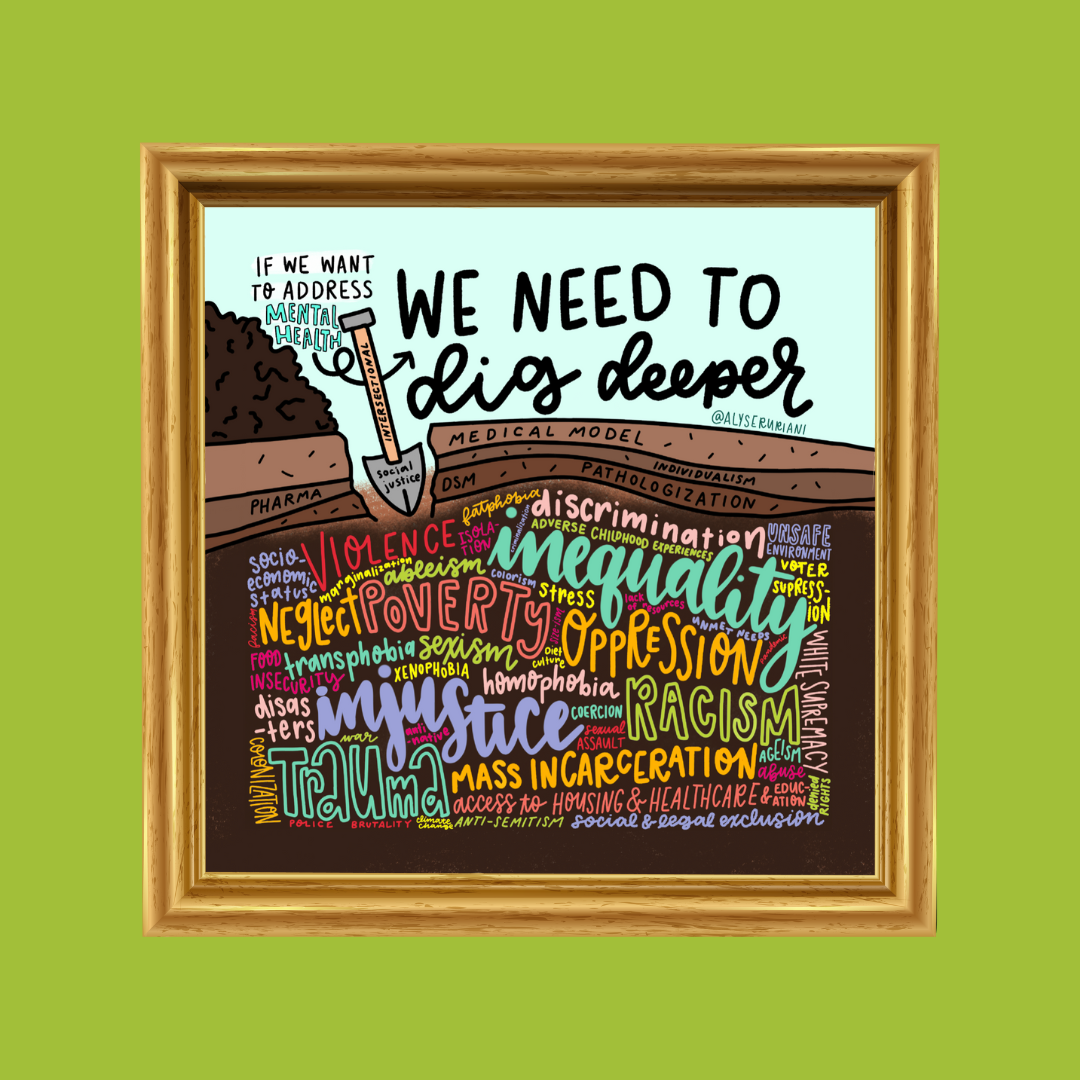 IF WE WANT
TO ADDRESS
MENTAL
HEALTH
WE NEED TO
dig deeper
@ALYSERURIANI
INTERSECTIONAL
social
justice
MEDICAL MODEL
INDIVIDUALISM
PHARMA
DSM
PATHOLOGIZATION
fatphobia
discrimination
criminalization
ADVERSE CHILDHOOD EXPERIENCES
UNSAFE
ENVIRONMENT
VIOLENCE
ISOLA-
TION
inequality
socio-
economic
status
marginalization
ableism
colorism
VOTER
SUPRESS-
ION
stress
lack
of resources
NEGlect
POVERTY
SIZE-ISM
UNMET NEEDS
pandemic
classism
OPPRESSION
FOOD
INSECURITY
transphobia
sexism
Diet
culture
XENOPHOBIA
homophobia
WHITE SUPREMACY
disas
-ters
injustice
COERCION
RACISM
war
anti
-native
sexual
ASSAULT
COLONIZATION
Trauma
MASS INCARCERATION
AGEISM
abuse
access to HOUSING & HEALTHCARE & EDUC-
ATION
denied
RIGHTS
POLICE BRUTALITY
climate
change
ANTI-SEMITISM
social & legal exclusion